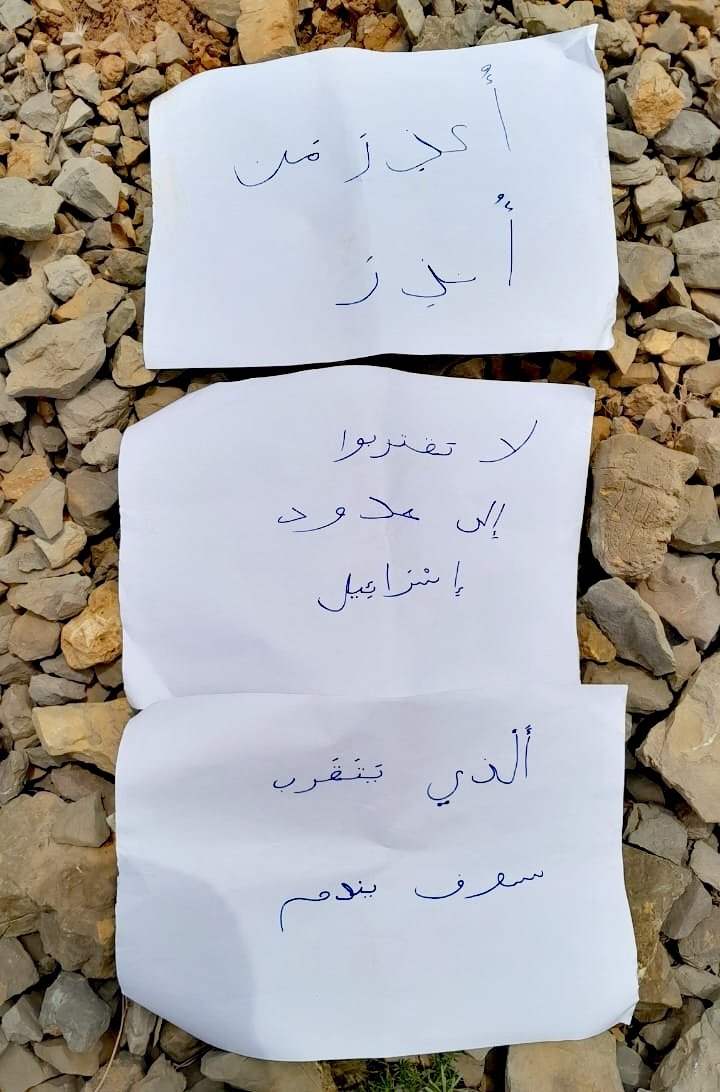 أُعذِرَ مَن
أُنذِرَ
لا تقتربوا
إلى حدود
إسْرائِيل
أَلّذي يَتَقَرب
سوف يندم